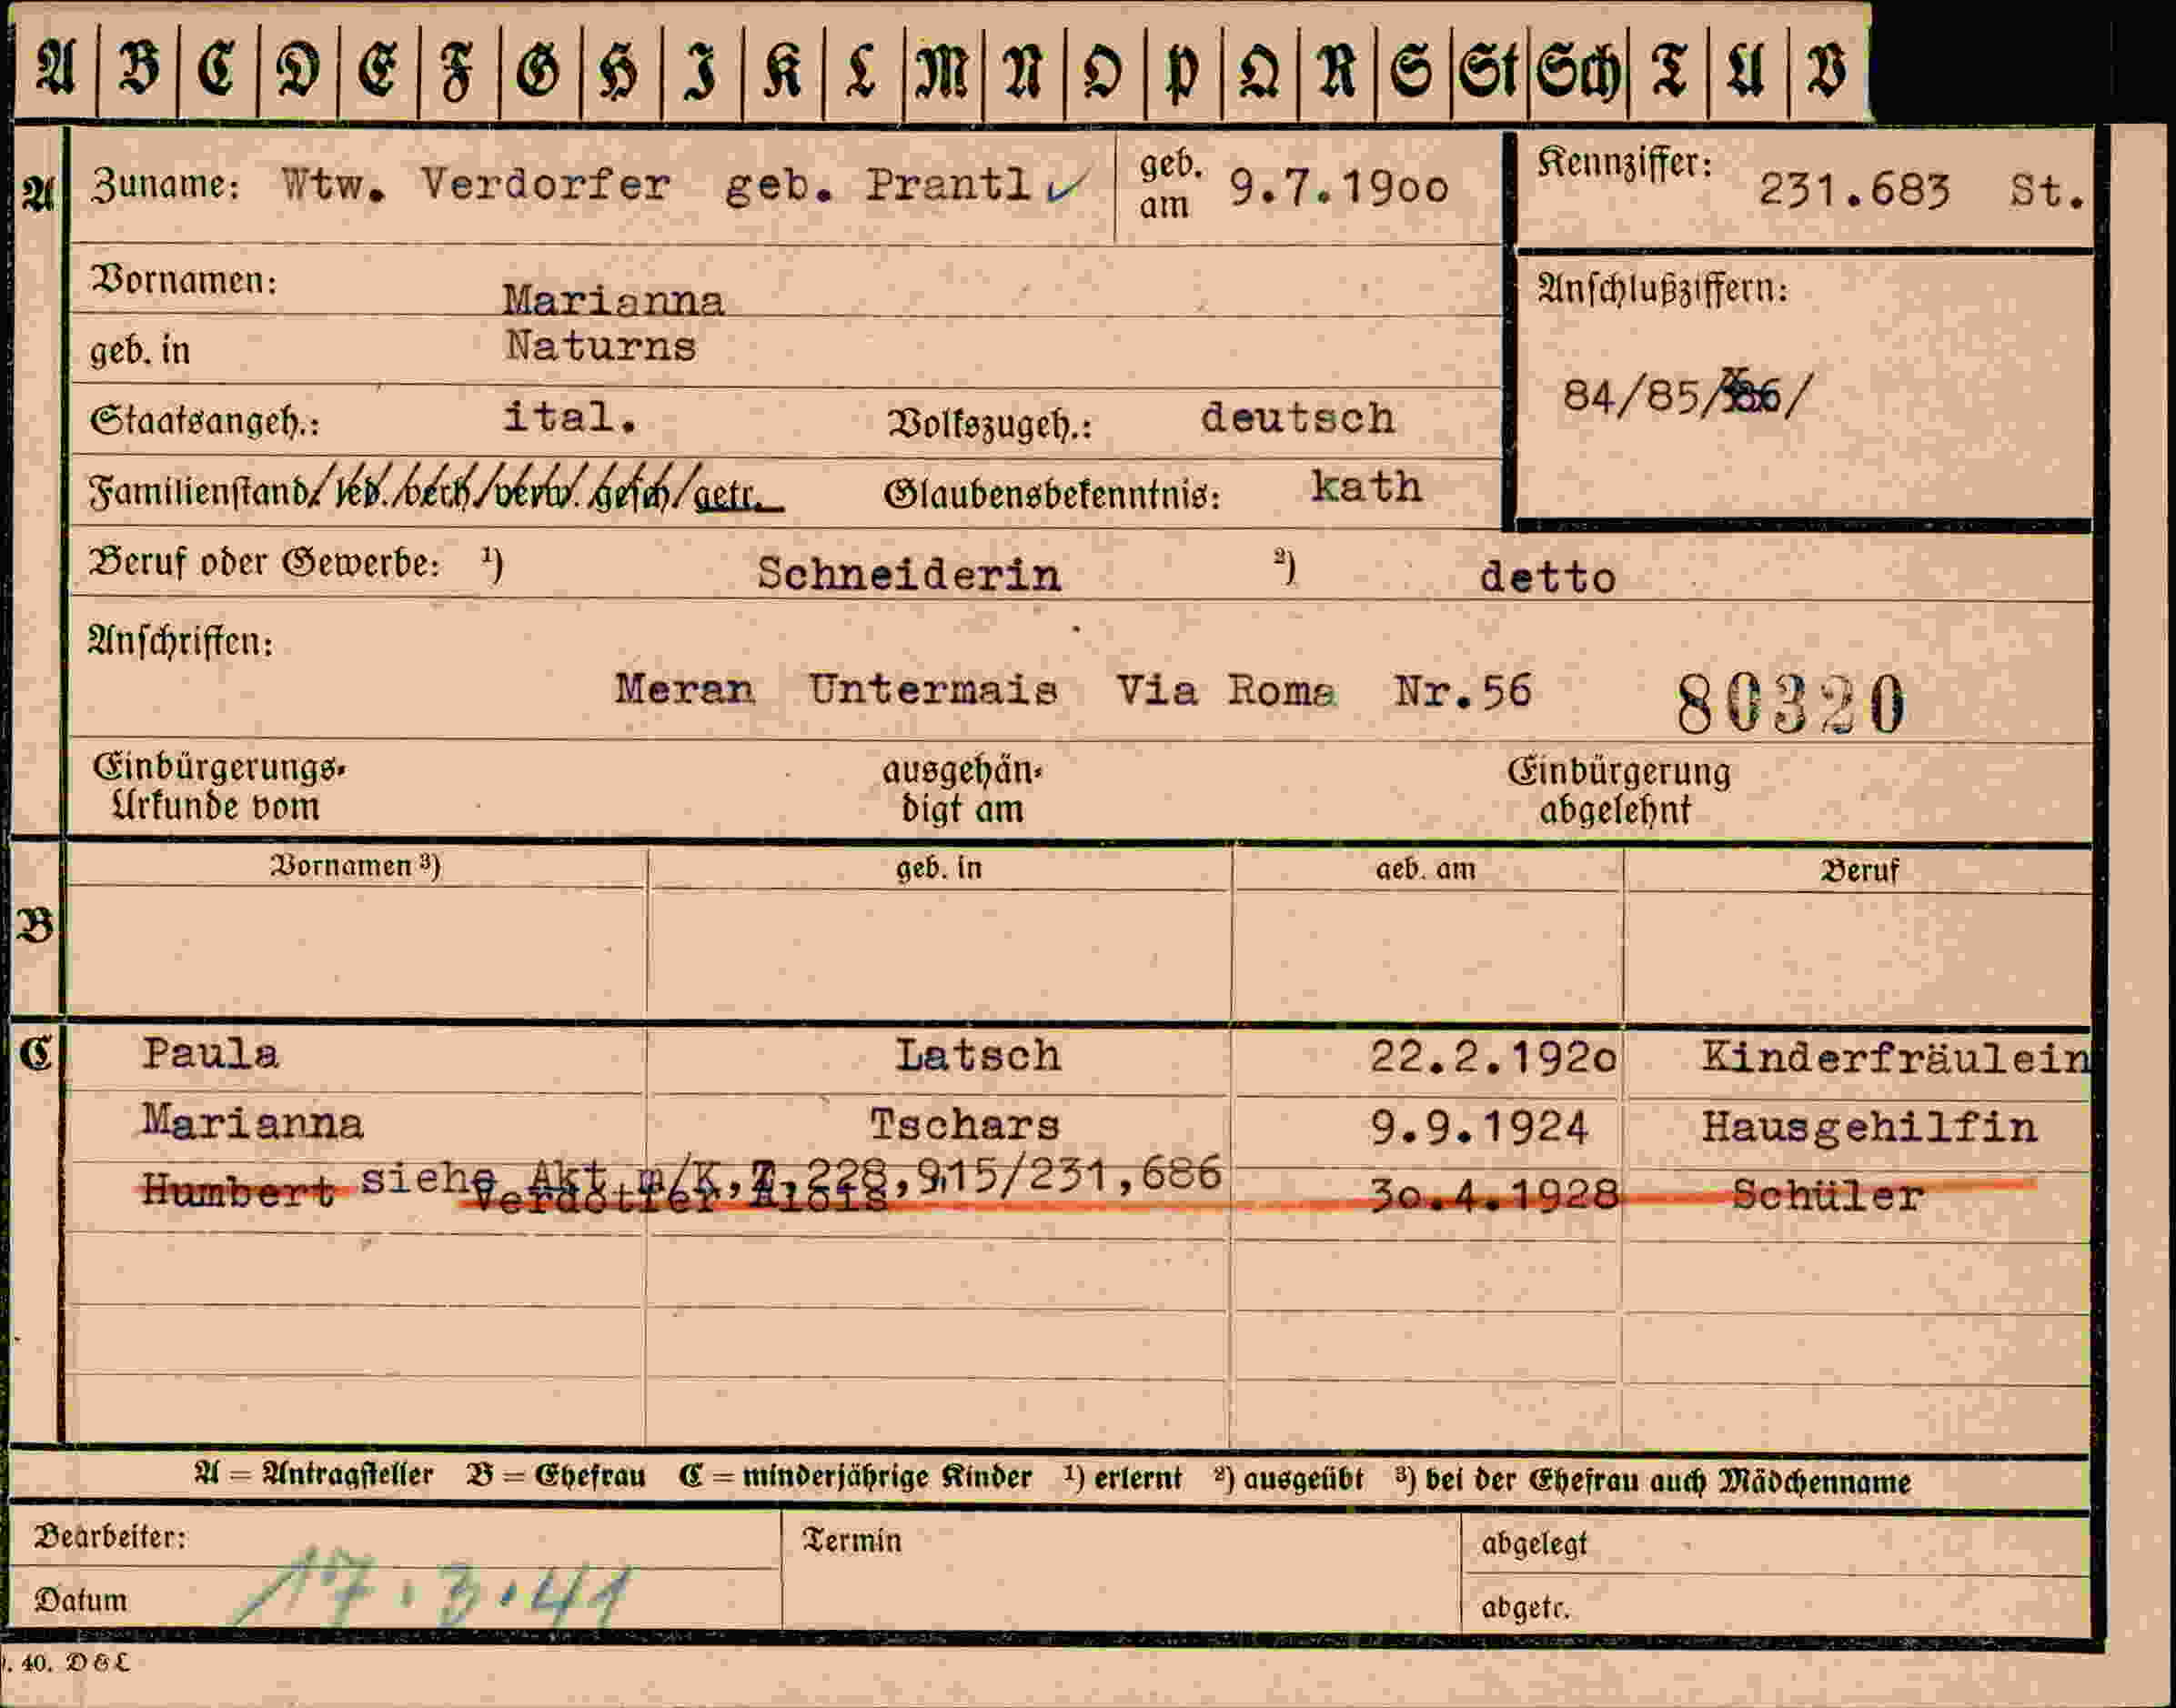 A B C D E F G H I K L M N O P Q R S St Sch T U V
A Zuname: Wtw. Verdorfer geb. Prantl ✓ geb. am 9.7.19oo Kennziffer: 231.683 St.
Vornamen: Marianna
Anschlußziffern:
geb. in Naturns
84/85/
Staatsangeh.: ital. Volkszugeh.: deutsch
Familienstand/led./verh/verw./gesch/getr. Glaubensbekenntnis: kath
Beruf oder Gewerbe: ¹) Schneiderin ²) detto
Anschriften:
Meran Untermais Via Roma Nr.56 80320
Einbürgerungs- ausgehän- Einbürgerung
Urkunde vom digt am abgelehnt
Vornamen ³) geb. in geb. am Beruf
B
C Paula Latsch 22.2.192o Kinderfräulein
Marianna Tschars 9.9.1924 Hausgehilfin
siehe Akt 228,915/231,686
Humbert 3o.4.1928 Schüler
A = Antragsteller B = Ehefrau C = minderjährige Kinder ¹) erlernt ²) ausgeübt ³) bei der Ehefrau auch Mädchenname
Bearbeiter: Termin abgelegt
Datum 17.3.41 abgetr.
. 40. D & L